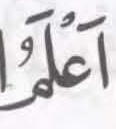 اَعْلَمُوا